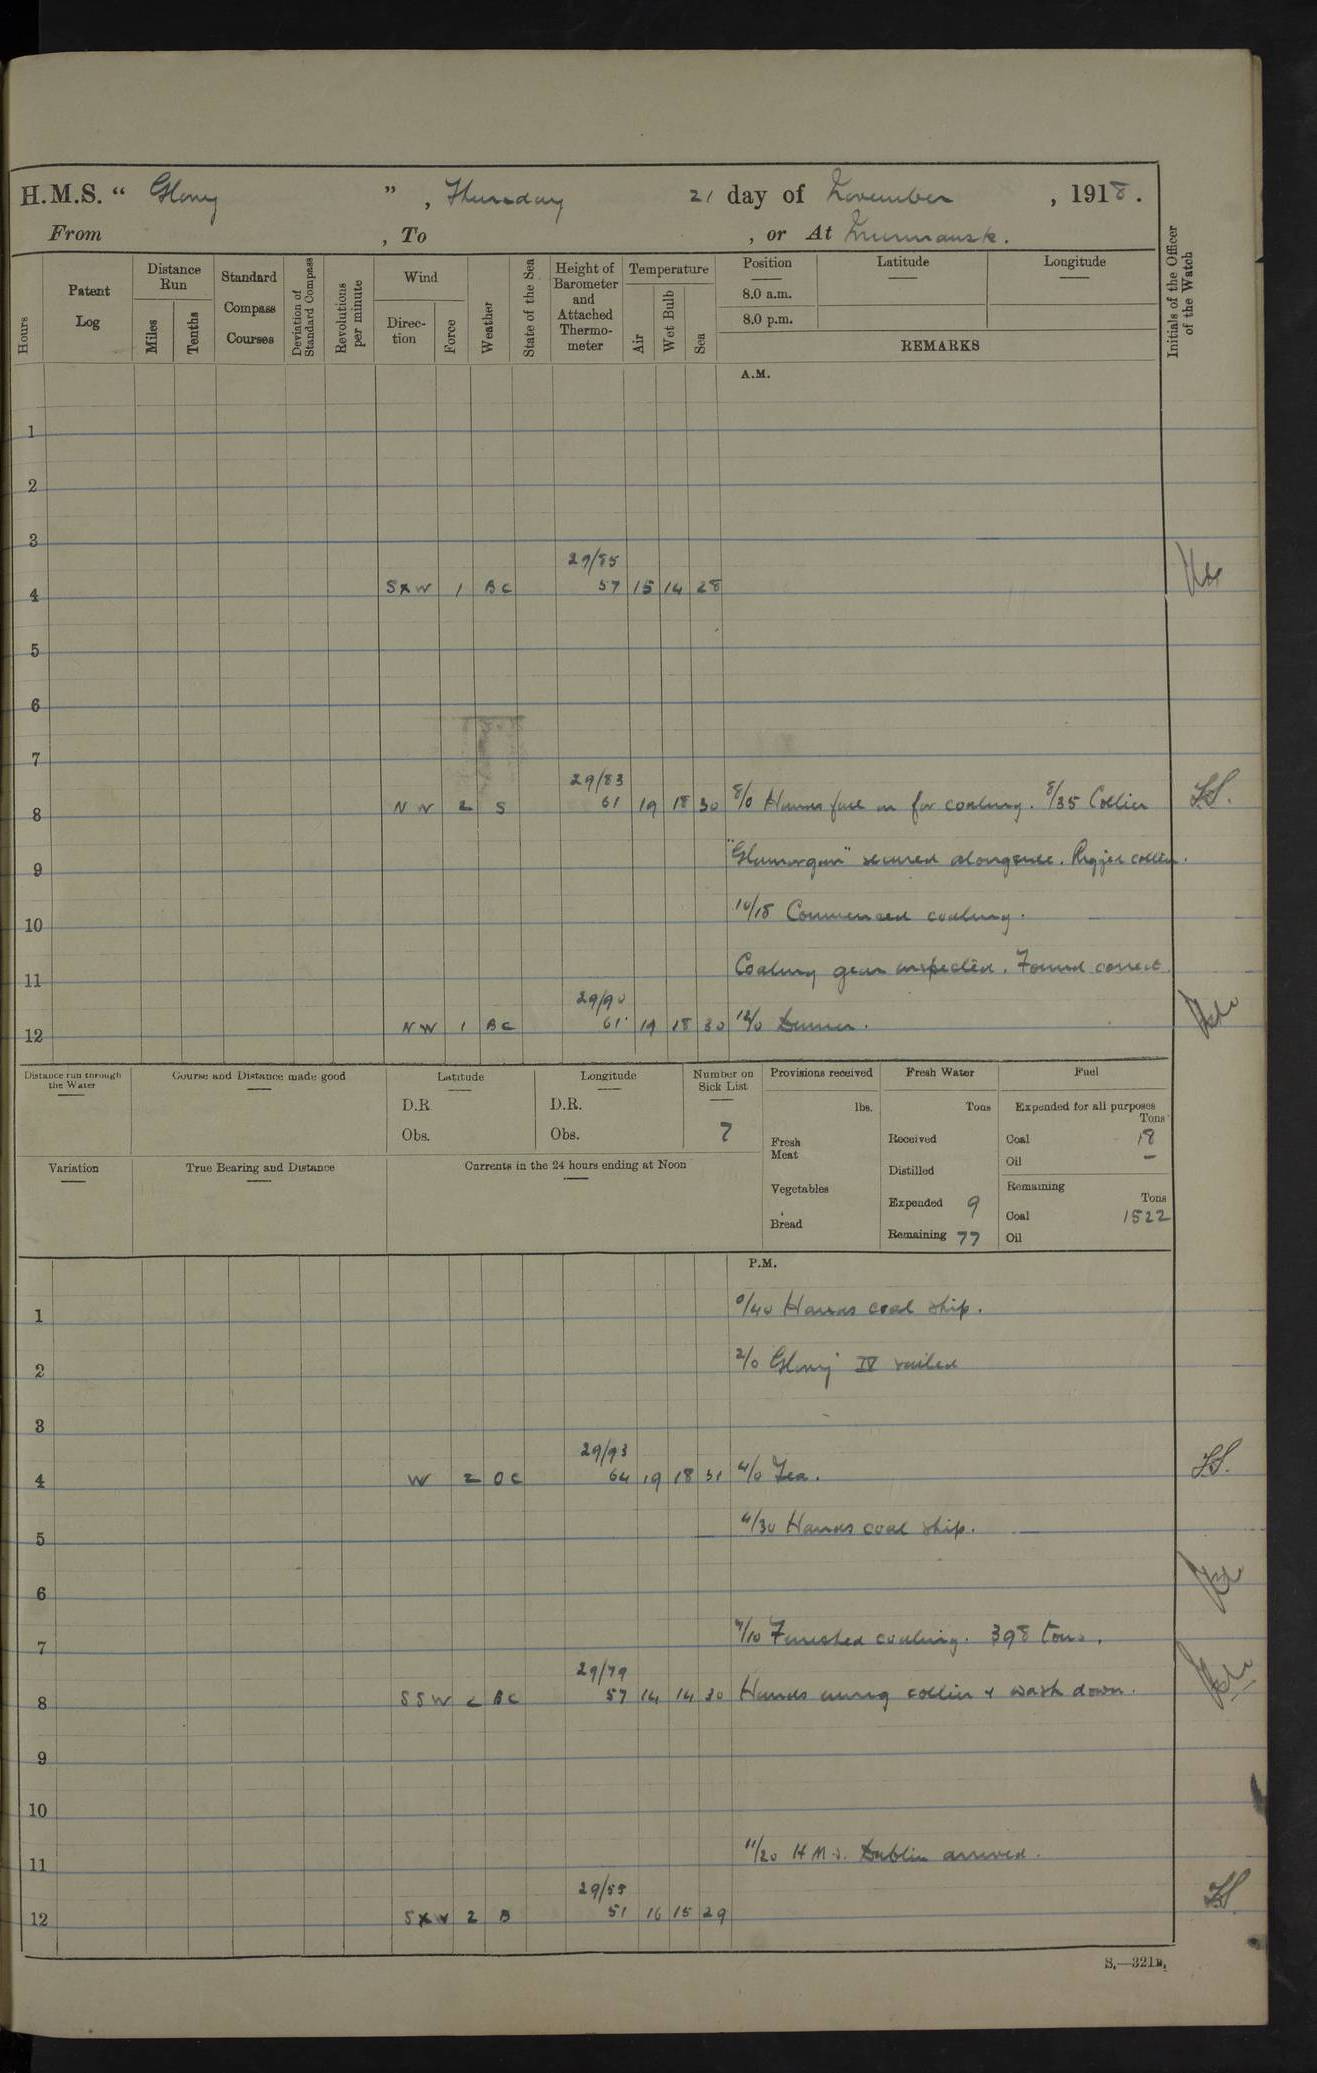 H.M.S. “ Glory ” , Thursday 21 day of November , 1918.
From , To , or At Murmansk.
Hours Patent Log Distance Run Miles Tenths Standard Compass Courses Deviation of Standard Compass Revolutions per minute Wind Direc-tion Force Weather State of the Sea Height of Barometer and Attached Thermo-meter Temperature Air Wet Bulb Sea Position 8.0 a.m. 8.0 p.m. Latitude Longitude REMARKS Initials of the Officer of the Watch
A.M.
1
2
3
29/85
4 SxW 1 BC 57 15 14 28
5
6
7
29/83
8 NW 2 S 61 19 18 30 8/0 Hands fall in for coaling. 8/35 Collier
9 "Glamorgan" secured alongside. Rigged collier.
10 10/15 Commenced coaling.
11 Coaling gear inspected. Found correct
29/90
12 NW 1 BC 61 19 18 30 12/0 Dinner.
Distance run through the Water Course and Distance made good Latitude Longitude Number on Sick List Provisions received Fresh Water Fuel
D.R. D.R. lbs. Tons Expended for all purposes Tons
Obs. Obs. 7 Fresh Meat Received Coal 18
Distilled Oil –
Variation True Bearing and Distance Currents in the 24 hours ending at Noon Vegetables Remaining Tons
Expended 9 Coal 1522
Bread Remaining 77 Oil
P.M.
1 0/40 Hands coal ship.
2 2/0 Glory IV sailed
3
29/93
4 W 2 OC 64 19 18 31 4/0 Tea.
5 4/30 Hands coal ship.
6
7 7/10 Finished coaling. 398 tons.
29/79
8 SSW 2 BC 57 14 14 30 Hands collier & wash down.
9
10
11 11/20 H.M.S. Dublin arrived.
29/55
12 SxW 2 B 51 16 15 29
S.—321B.